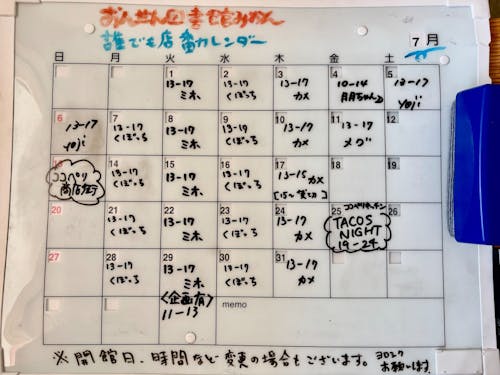 おんせん図書館みかん
誰でも店番カレンダー
7月
日 月 火 水 木 金 土
1 2 3 4 5
13-17 13-17 13-17 10-14 13-17
ミホ くぼっち カメ Yoji
6 7 8 9 10 11 12
13-17 13-17 13-17 13-17 13-17 13-17
Yoji くぼっち ミホ くぼっち カメ メグ
13 14 15 16 17 18 19
ココペリ 13-17 13-17 13-17 13-15 カメ
商店街 くぼっち ミホ くぼっち
20 21 22 23 24 25 26
ココペリキッチン
13-17 13-17 13-17 13-17 TACOS
くぼっち ミホ くぼっち カメ NIGHT
19-24
27 28 29 30 31
13-17 13-17 13-17 13-17
くぼっち ミホ くぼっち カメ
<企画有>
11-13
memo
※開館日、時間など変更の場合もございます。ヨロシク
お願いします